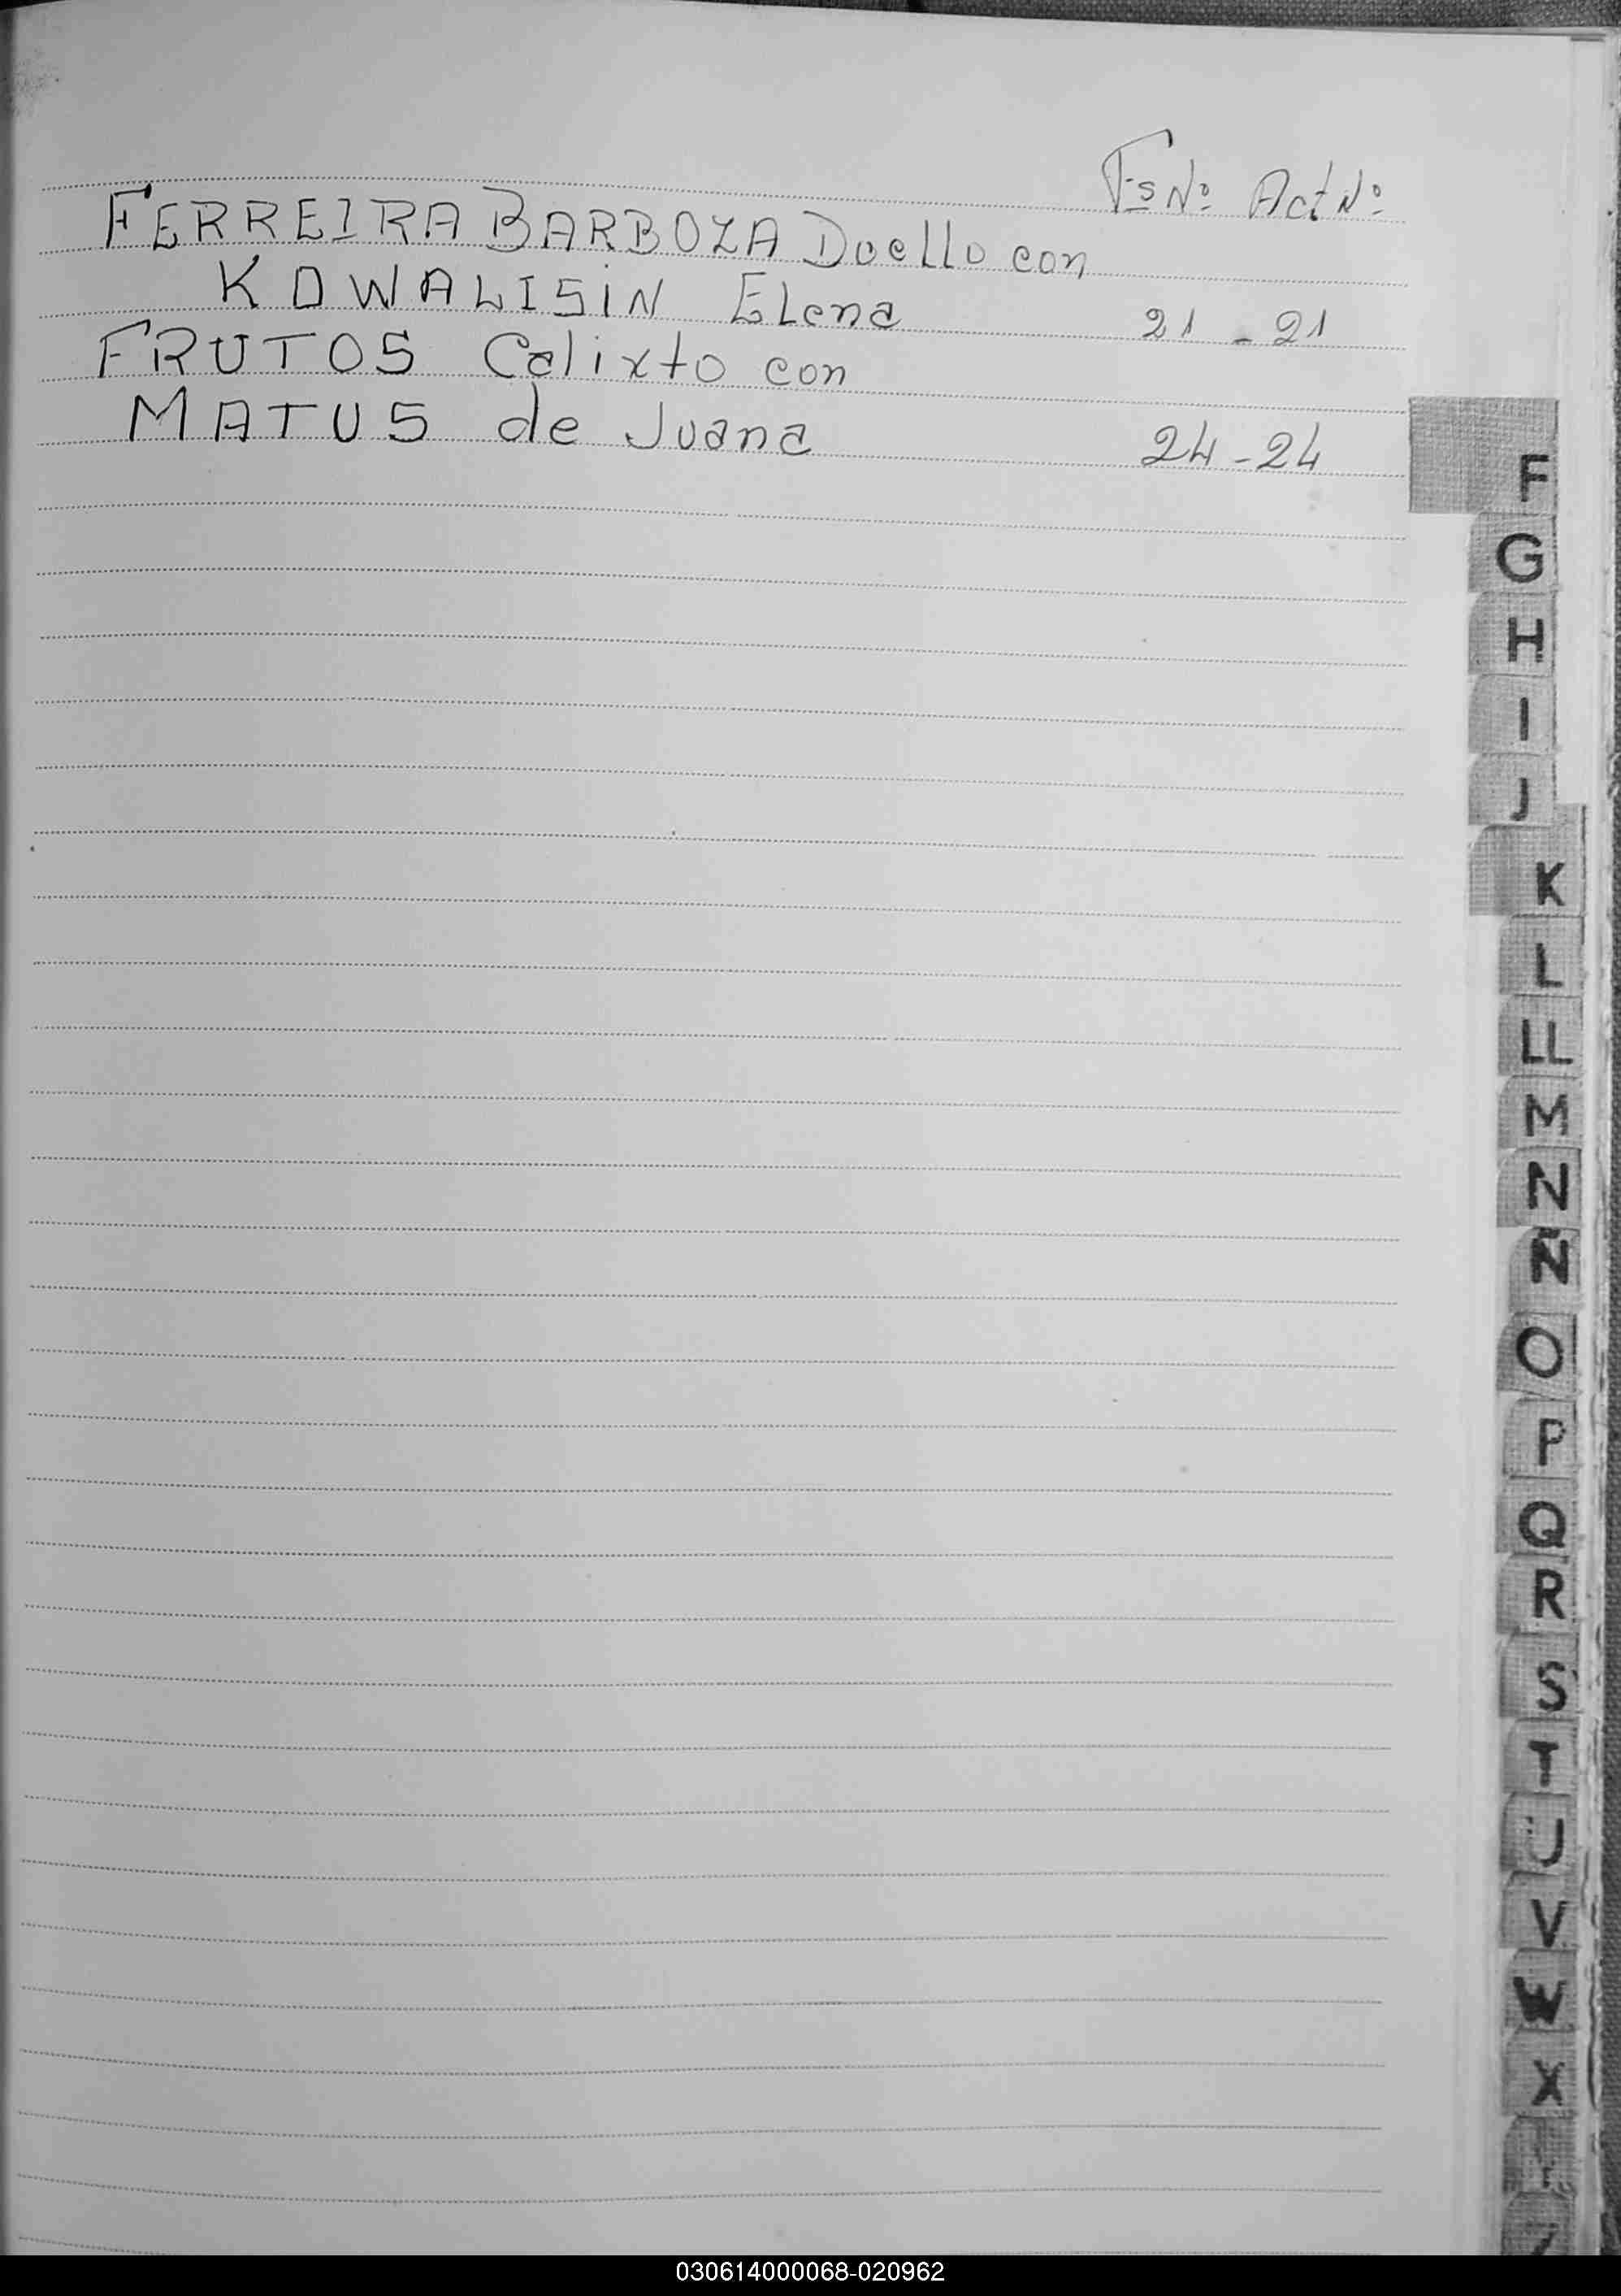 Fs Nº Act Nº
FERREIRA BARBOZA Duello con
KOWALISIN Elena 21 - 21
FRUTOS Calixto con
MATUS de Juana 24 - 24
F
G
H
I
J
K
L
LL
M
N
Ñ
O
P
Q
R
S
T
U
V
W
X
030614000068-020962